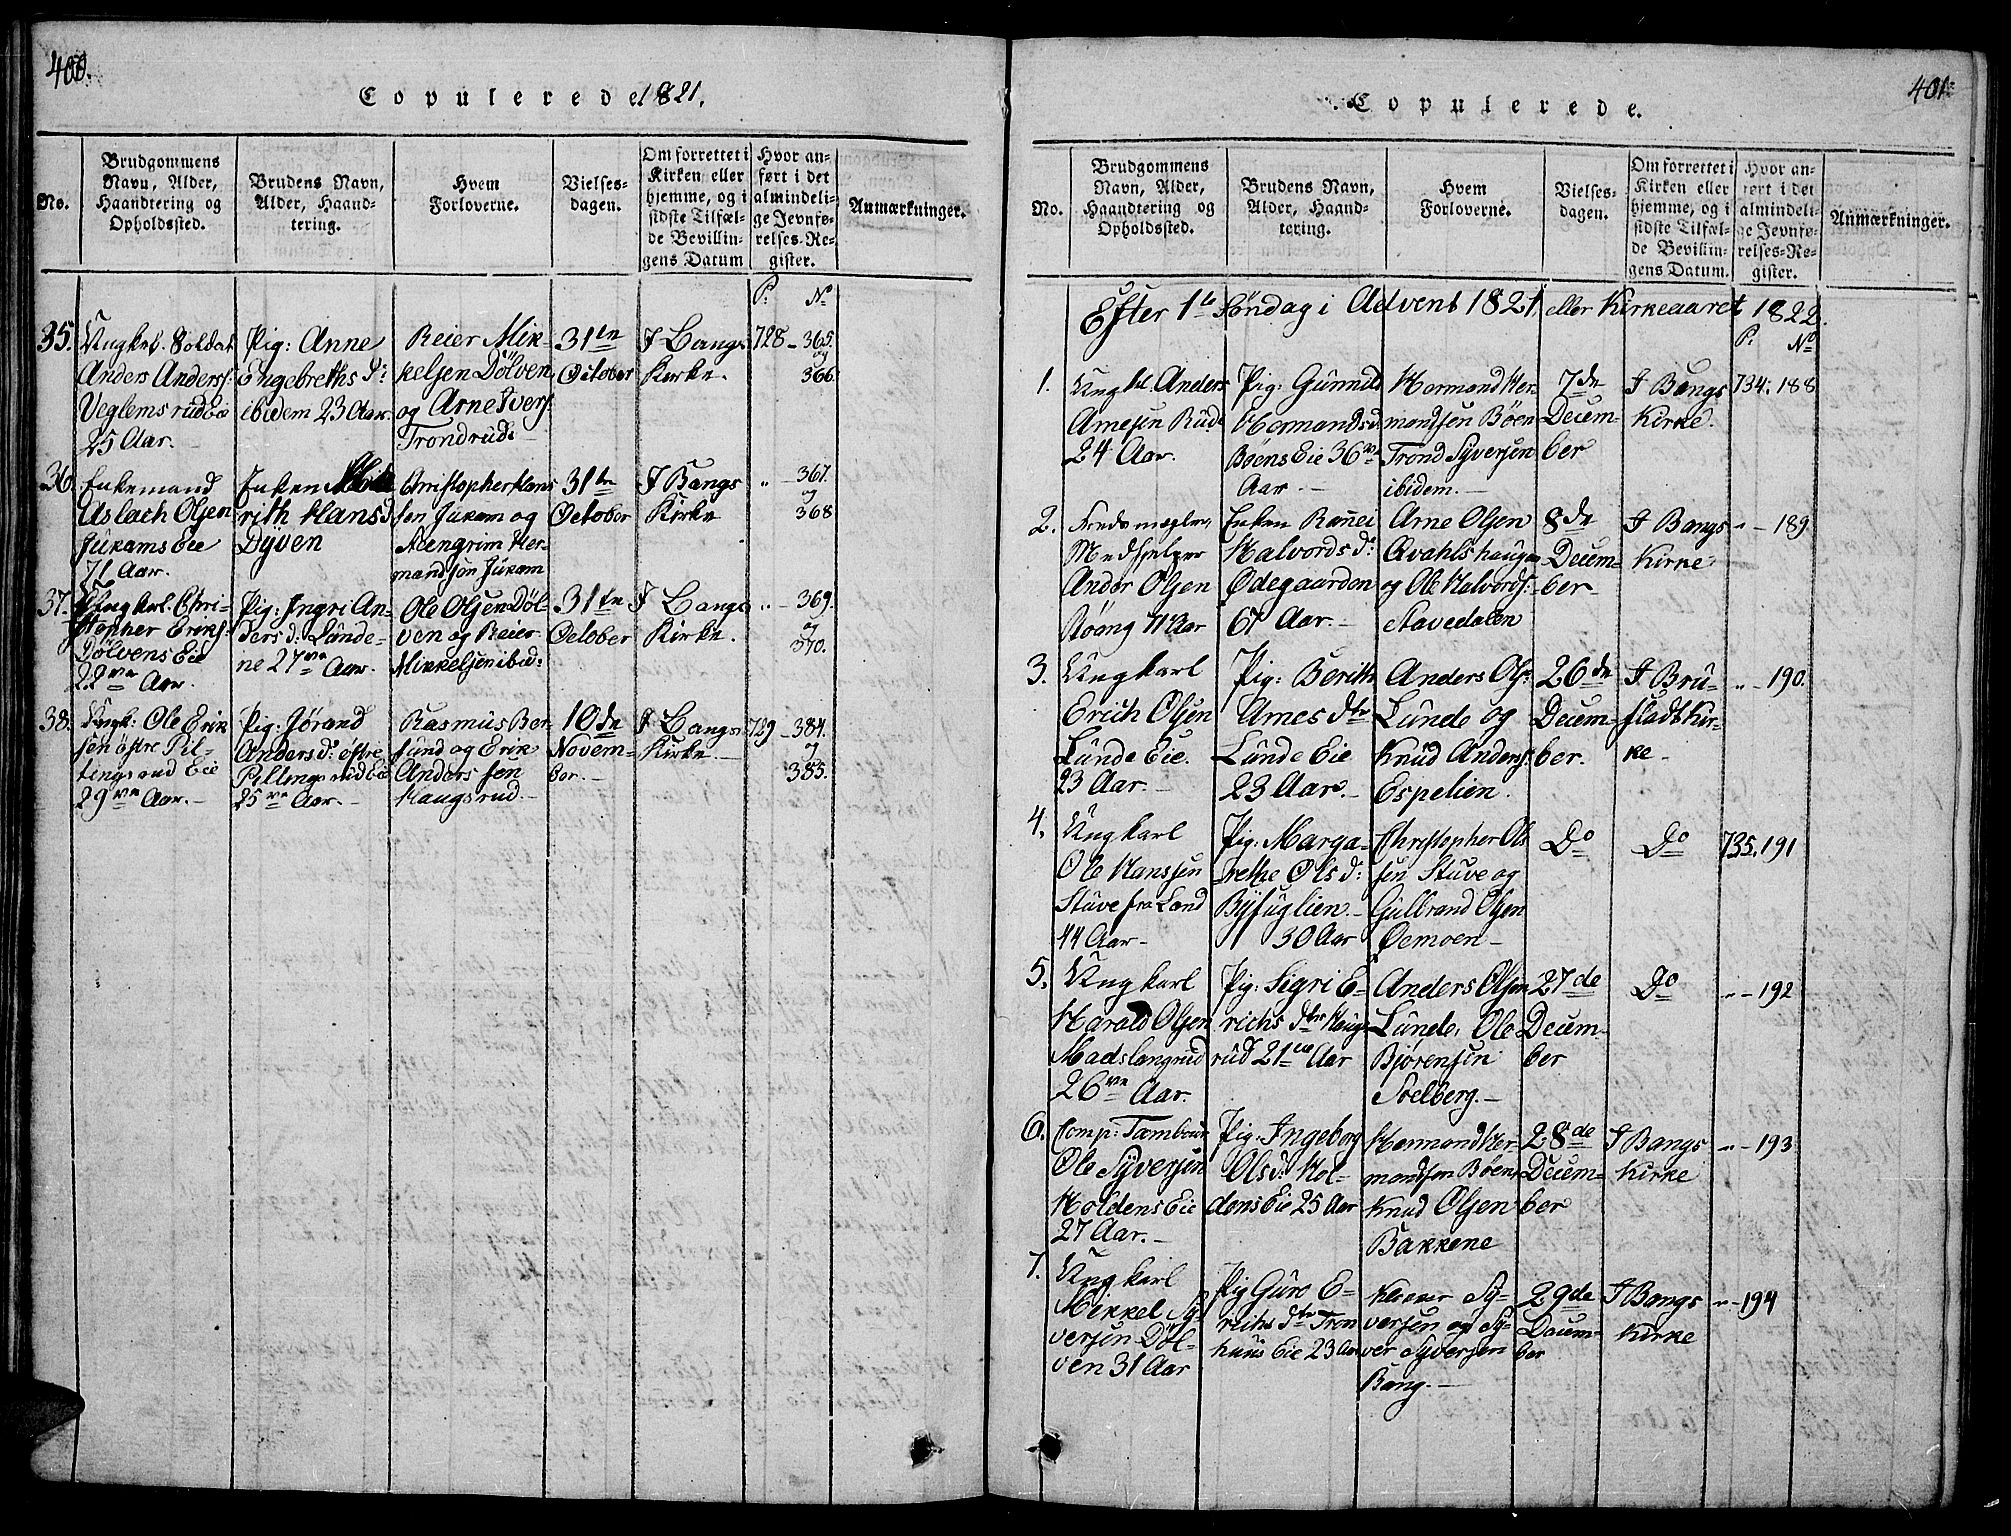 400.
Copulerede 1821.
No.
Brudgommens
Navn, Alder,
Haandtering og
Opholdssted.
Brudens Navn,
Alder, Haand-
tering.
Hvem
Forloverne.
Vielses-
dagen.
Om forrettet i
Kirken eller
hjemme, og i
sidste Tilfæl-
de Bevillin-
gens Datum
Hvor an-
ført i det
almindeli-
ge Jevnfø-
relses-Re-
gister.
Anmærkninger.
P. No
35.
Ungk: Soldat
Anders Anders:
Veglemsrud Eie
25 Aar.
Pig: Anne
Engebreths d:
ibidem 23 Aar.
Reier Mik-
kelsen Dölven
og Arne Ivers:
Trondrud
31te
October
I Bangs
Kirke.
728 - 365.
og
366
36.
Enkemand
Aslach Olsen
Jukams Eie
71 Aar.
Enken
rith Hans d
Dyven
Christopher Hans
sen Jukam og
Steengrim Her-
mandsön Jukam
31te
October
I Bangs
Kirke
" - 367.
og
368
37.
Ungkarl. Chri-
stopher Eriks:
Dölvens Eie
22 Aar.
Pig: Ingri An-
ders d: Lunde-
ine 27 Aar.
Ole Olsen Döl-
ven og Reier
Mikkelsen ibid:
31te
October
I Bangs
Kirke.
" - 369.
og
370.
38.
Ungk: Ole Erik
sen östre Pil-
tingsrud Eie
29 Aar.
Pig: Jörand
Anders d: östre
Piltingsrud Eie
25 Aar.
Rasmus Ber
sund og Erik
Anders sen
Haugsrud.
10de
Novem-
ber.
I Bangs
Kirke.
729 - 384.
og
385.
401.
Copulerede.
No.
Brudgommens
Navn, Alder,
Haandtering og
Opholdssted.
Brudens Navn,
Alder, Haand-
tering.
Hvem
Forloverne.
Vielses-
dagen.
Om forrettet i
Kirken eller
hjemme, og i
sidste Tilfæl-
de Bevillin-
gens Datum.
Hvor an-
ført i det
almindeli-
ge Jevnfø-
relses-Re-
gister.
Anmærkninger.
Efter 1te Söndag i Advent 1821 eller Kirkeaaret 1822.
P. No
1.
Ungkl. Anders
Arnesen Rude
24 Aar.
Pig: Gunnild
Hermands d.
Böens Eie 36
Aar
Hermand Her
mandsen Böen
Trond Syversen
ibidem.
7de
Decem-
ber
I Bangs
Kirke.
734. 188
2.
Medhjelper
Ander Olsen
Röang 71 Aar
Enken Rannei
Halvords d:
Ödegaarden
67 Aar
Arne Olsen
Qvahlshaugen
og Ole Halvords:
Stavedalen
8de
Decem-
ber
I Bangs
Kirke
" - 189
3.
Ungkarl
Erich Olsen
Lunde Eie.
23 Aar.
Pig: Berith
Arnes dtr
Lunde Eie
23 Aar.
Anders Ols:
Lunde og
Knud Anders:
Espelien.
26de
Decem-
ber.
I Bru-
fladt Kir-
ke
" - 190.
4.
Ungkarl
Ole Hanssen
Stuve fra Land
44 Aar
Pig: Marga-
rethe Ols d:
Byfuglien.
30 Aar
Christopher Ols
sen Stuve og
Gulbrand Olsen
Öemoen
Do
Do
735. 191
5.
Ungkarl
Harald Olsen
Madslangrud
26 Aar.
Pig: Sigri E-
richs dtr Haug
rud 21 Aar
Anders Olsen
Lunde, Ole
Björensen
Soelberg.
27de
Decem-
ber
Do
" - 192
6.
Comp: Tambour
Ole Syversen
Holdens Eie
27 Aar.
Pig: Ingeborg
Ols d: Hol-
dens Eie 25 Aar
Hermand Her-
mandsen Böen
Knud Olsen
Bakkene
28de
Decem-
ber
I Bangs
Kirke
" - 193
7.
Ungkarl
Mikkel Sy-
versen Döl-
ven 31 Aar
Pig Guro E-
richs dtr Tron
huus Eie 23 Aar
Sy-
versen og Sy-
ver Syversen
Bang.
29de
Decem-
ber
I Bangs
Kirke
" - 194